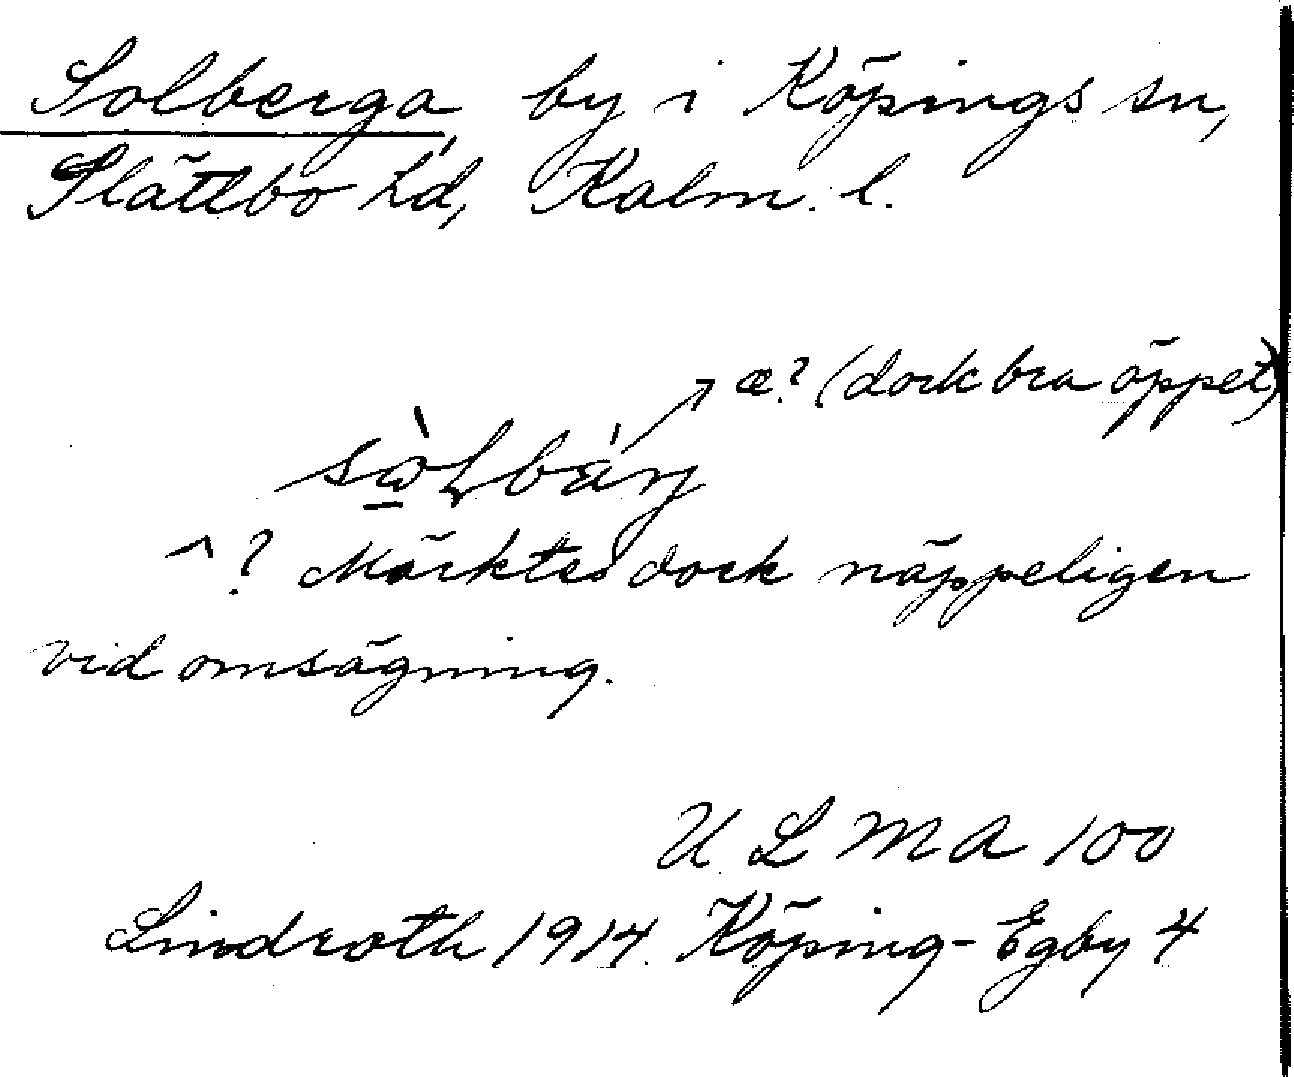 Solberga, by i Köpings sn,
Slättbo hd, Kalm. l.
æ? (dock bra öppet)
^ ? Märktes dock näppeligen
vid omsägning.
ULMA 100
Lindroth 1914. Köping-Egby 4